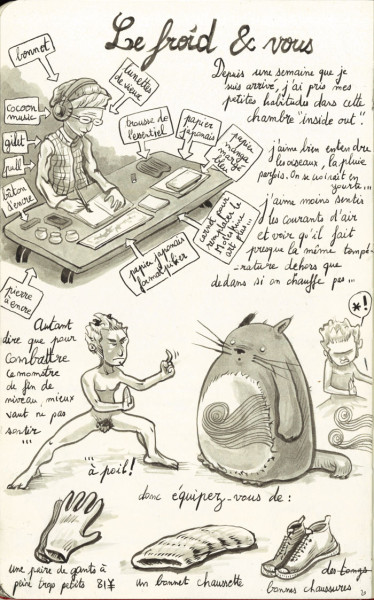 Le froid & vous
bonnet
lunettes
de vieux
cocoon
music
gilet
pull
bâton
d'encre
pierre
à encre
trousse de
l'essentiel
papier
japonais
papier
manga
marges
bleu
carnet pour
remplacer le
Moleskine
art plus...
papier japonais
format
Depuis une semaine que je
suis arrivé, j'ai pris mes
petites habitudes dans cette
chambre "inside out".
j'aime bien entendre
les oiseaux, la pluie
parfois. On se croirait en
yourte...
j'aime moins sentir
les courants d'air
et voir qu'il fait
presque la même tempé-
-rature dehors que
dedans si on chauffe pas...
Autant
dire que pour
combattre
ce monstre
de fin de
niveau mieux
vaut ne pas
sortir
...
...
à poil!
*!
donc équipez-vous de:
une paire de gants à
peine trop petits 81¥
un bonnet chaussette
des
bonnes chaussures